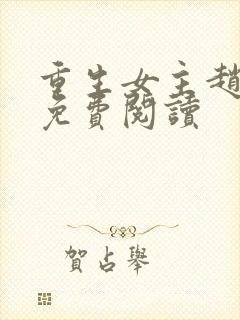 重生女主趙
免費閱讀
賀占舉